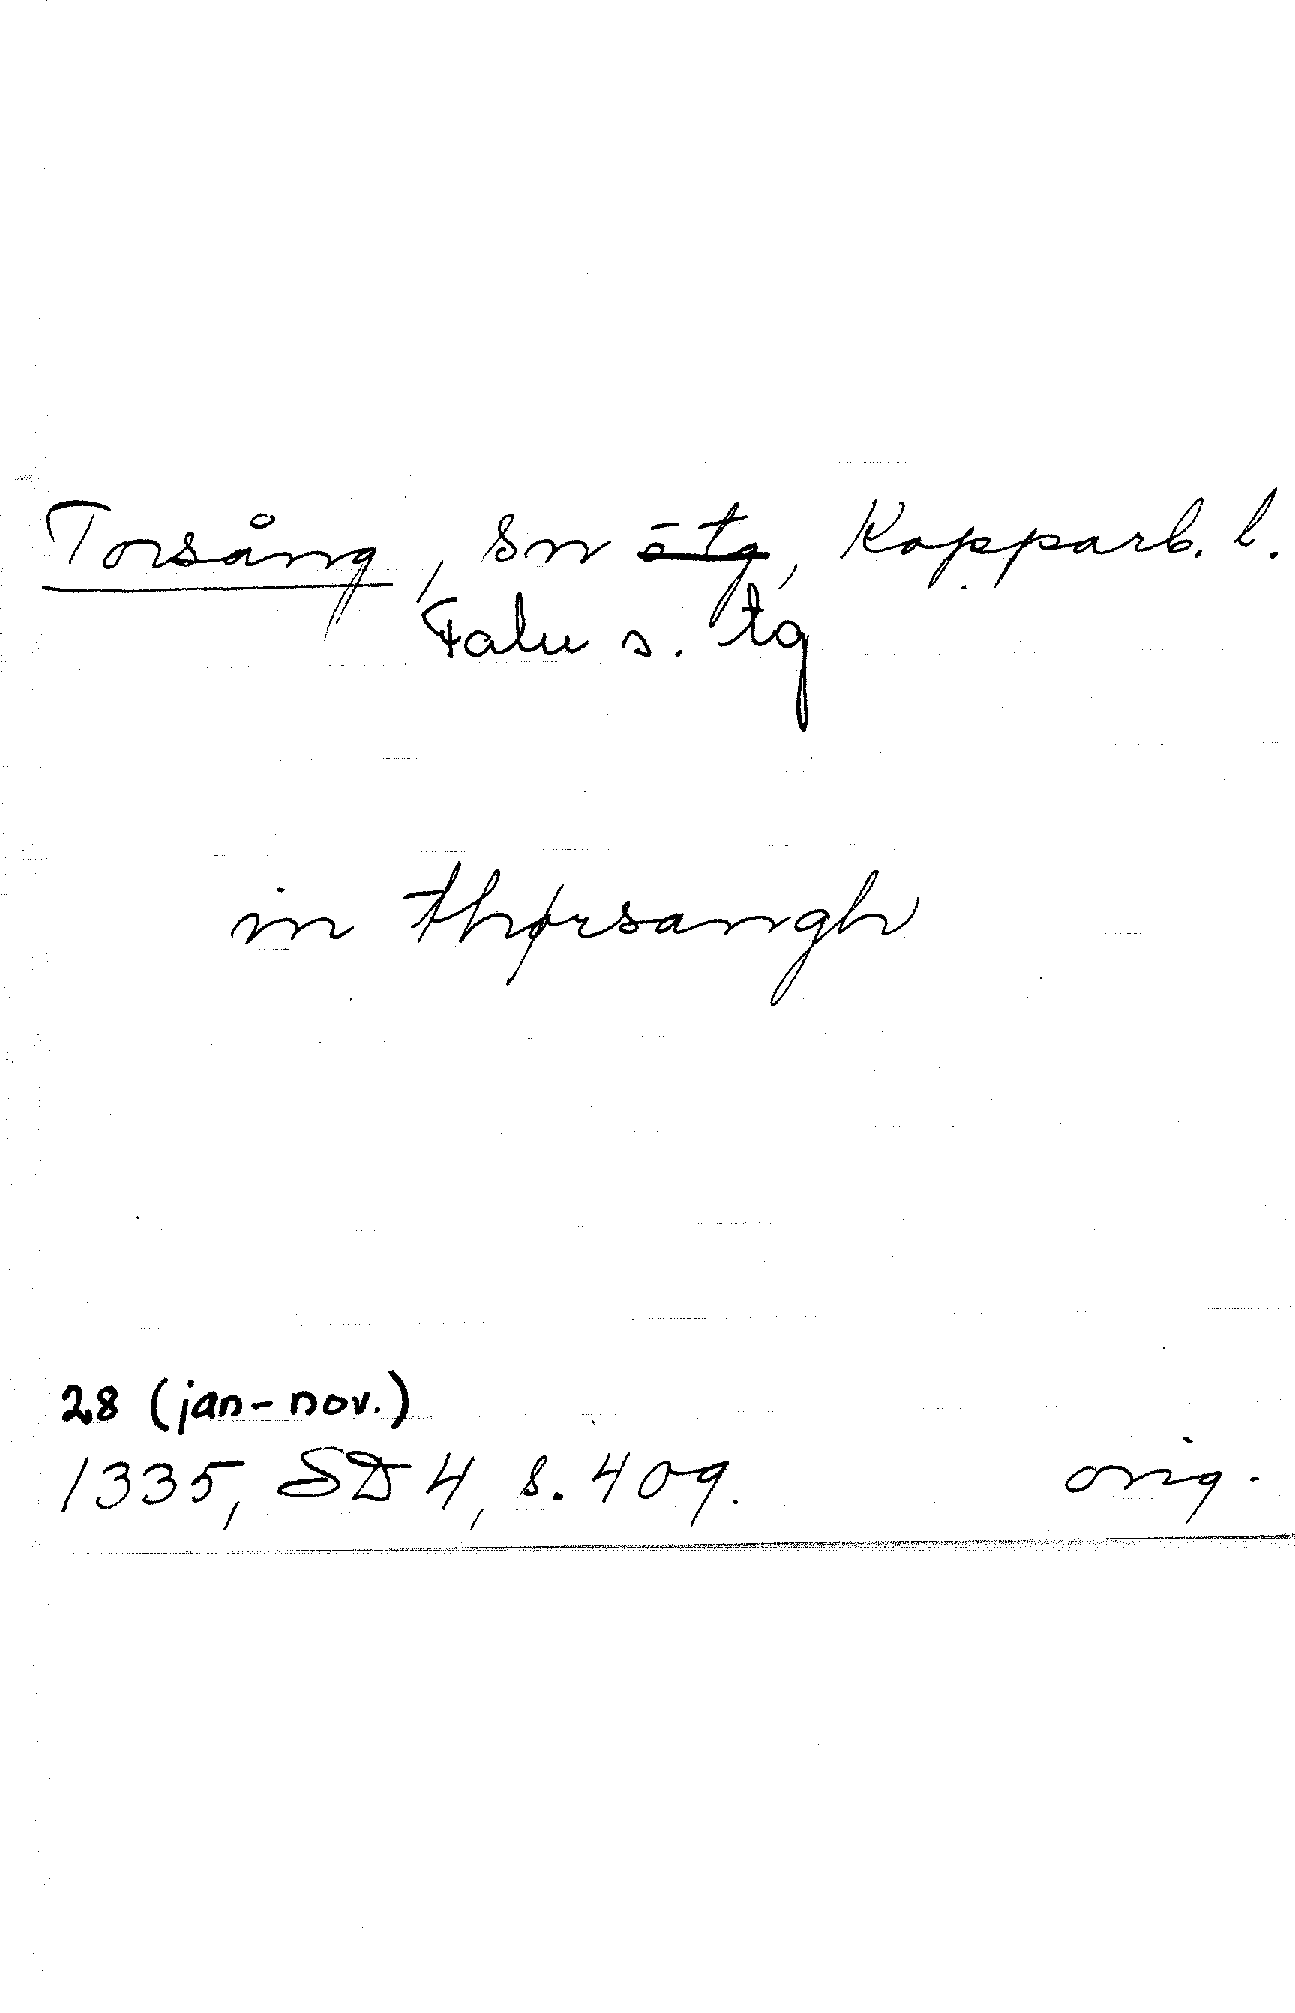 Torsång, sn ōtg, Kopparb. l.
Falu s. tg
in thørsangh
28 (jan-nov.)
1335, SD 4, s. 409. orig.